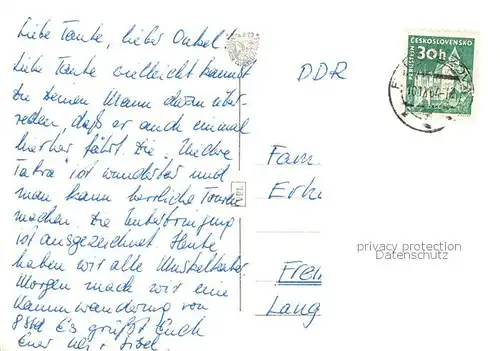 Liebe Tante, lieber Onkel!
Liebe Tante vielleicht kannst
Du Deinen Mann dazu über-
reden, daß er auch einmal
hierher fährt. Die "Niedere
Tatra" ist wunderbar und
man kann herrliche Touren
machen. Die Unterbringung
ist ausgezeichnet. Heute
haben wir alle Muskelkater
Morgen mach wir eine
Kammwanderung von
8 Std Es grüßt Euch
Euer
DDR
Fam
Erh
Frei
Lang
ČESKOSLOVENSKO
30h
PERNŠTEJN
privacy protection
Datenschutz